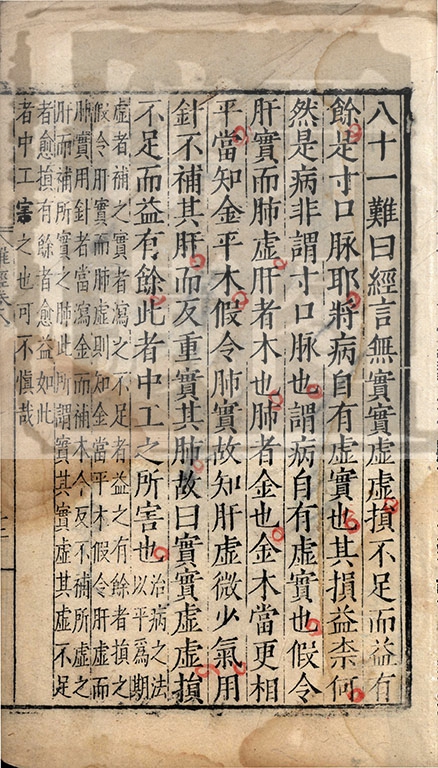 八十一難曰經言無實實虛虛損不足而益有
餘是寸口脉耶將病自有虛實也其損益柰何
然是病非謂寸口脉也謂病自有虛實也假令
肝實而肺虛肝者木也肺者金也金木當更相
平當知金平木假令肺實故知肝虛微少氣用
針不補其肝而反重實其肺故曰實實虛虛損
不足而益有餘此者中工之所害也治病之法以平爲期
虛者補之實者瀉之不足者益之有餘者損之
假令肝實而肺虛則知金當平木假令肝虛而
肺實用針者當瀉金而補木今反不補所虛之
肝而補所實之肺此所謂實其實虛其虛不足
者愈損有餘者愈益如此
者中工害之也可不慎哉
難經卷八